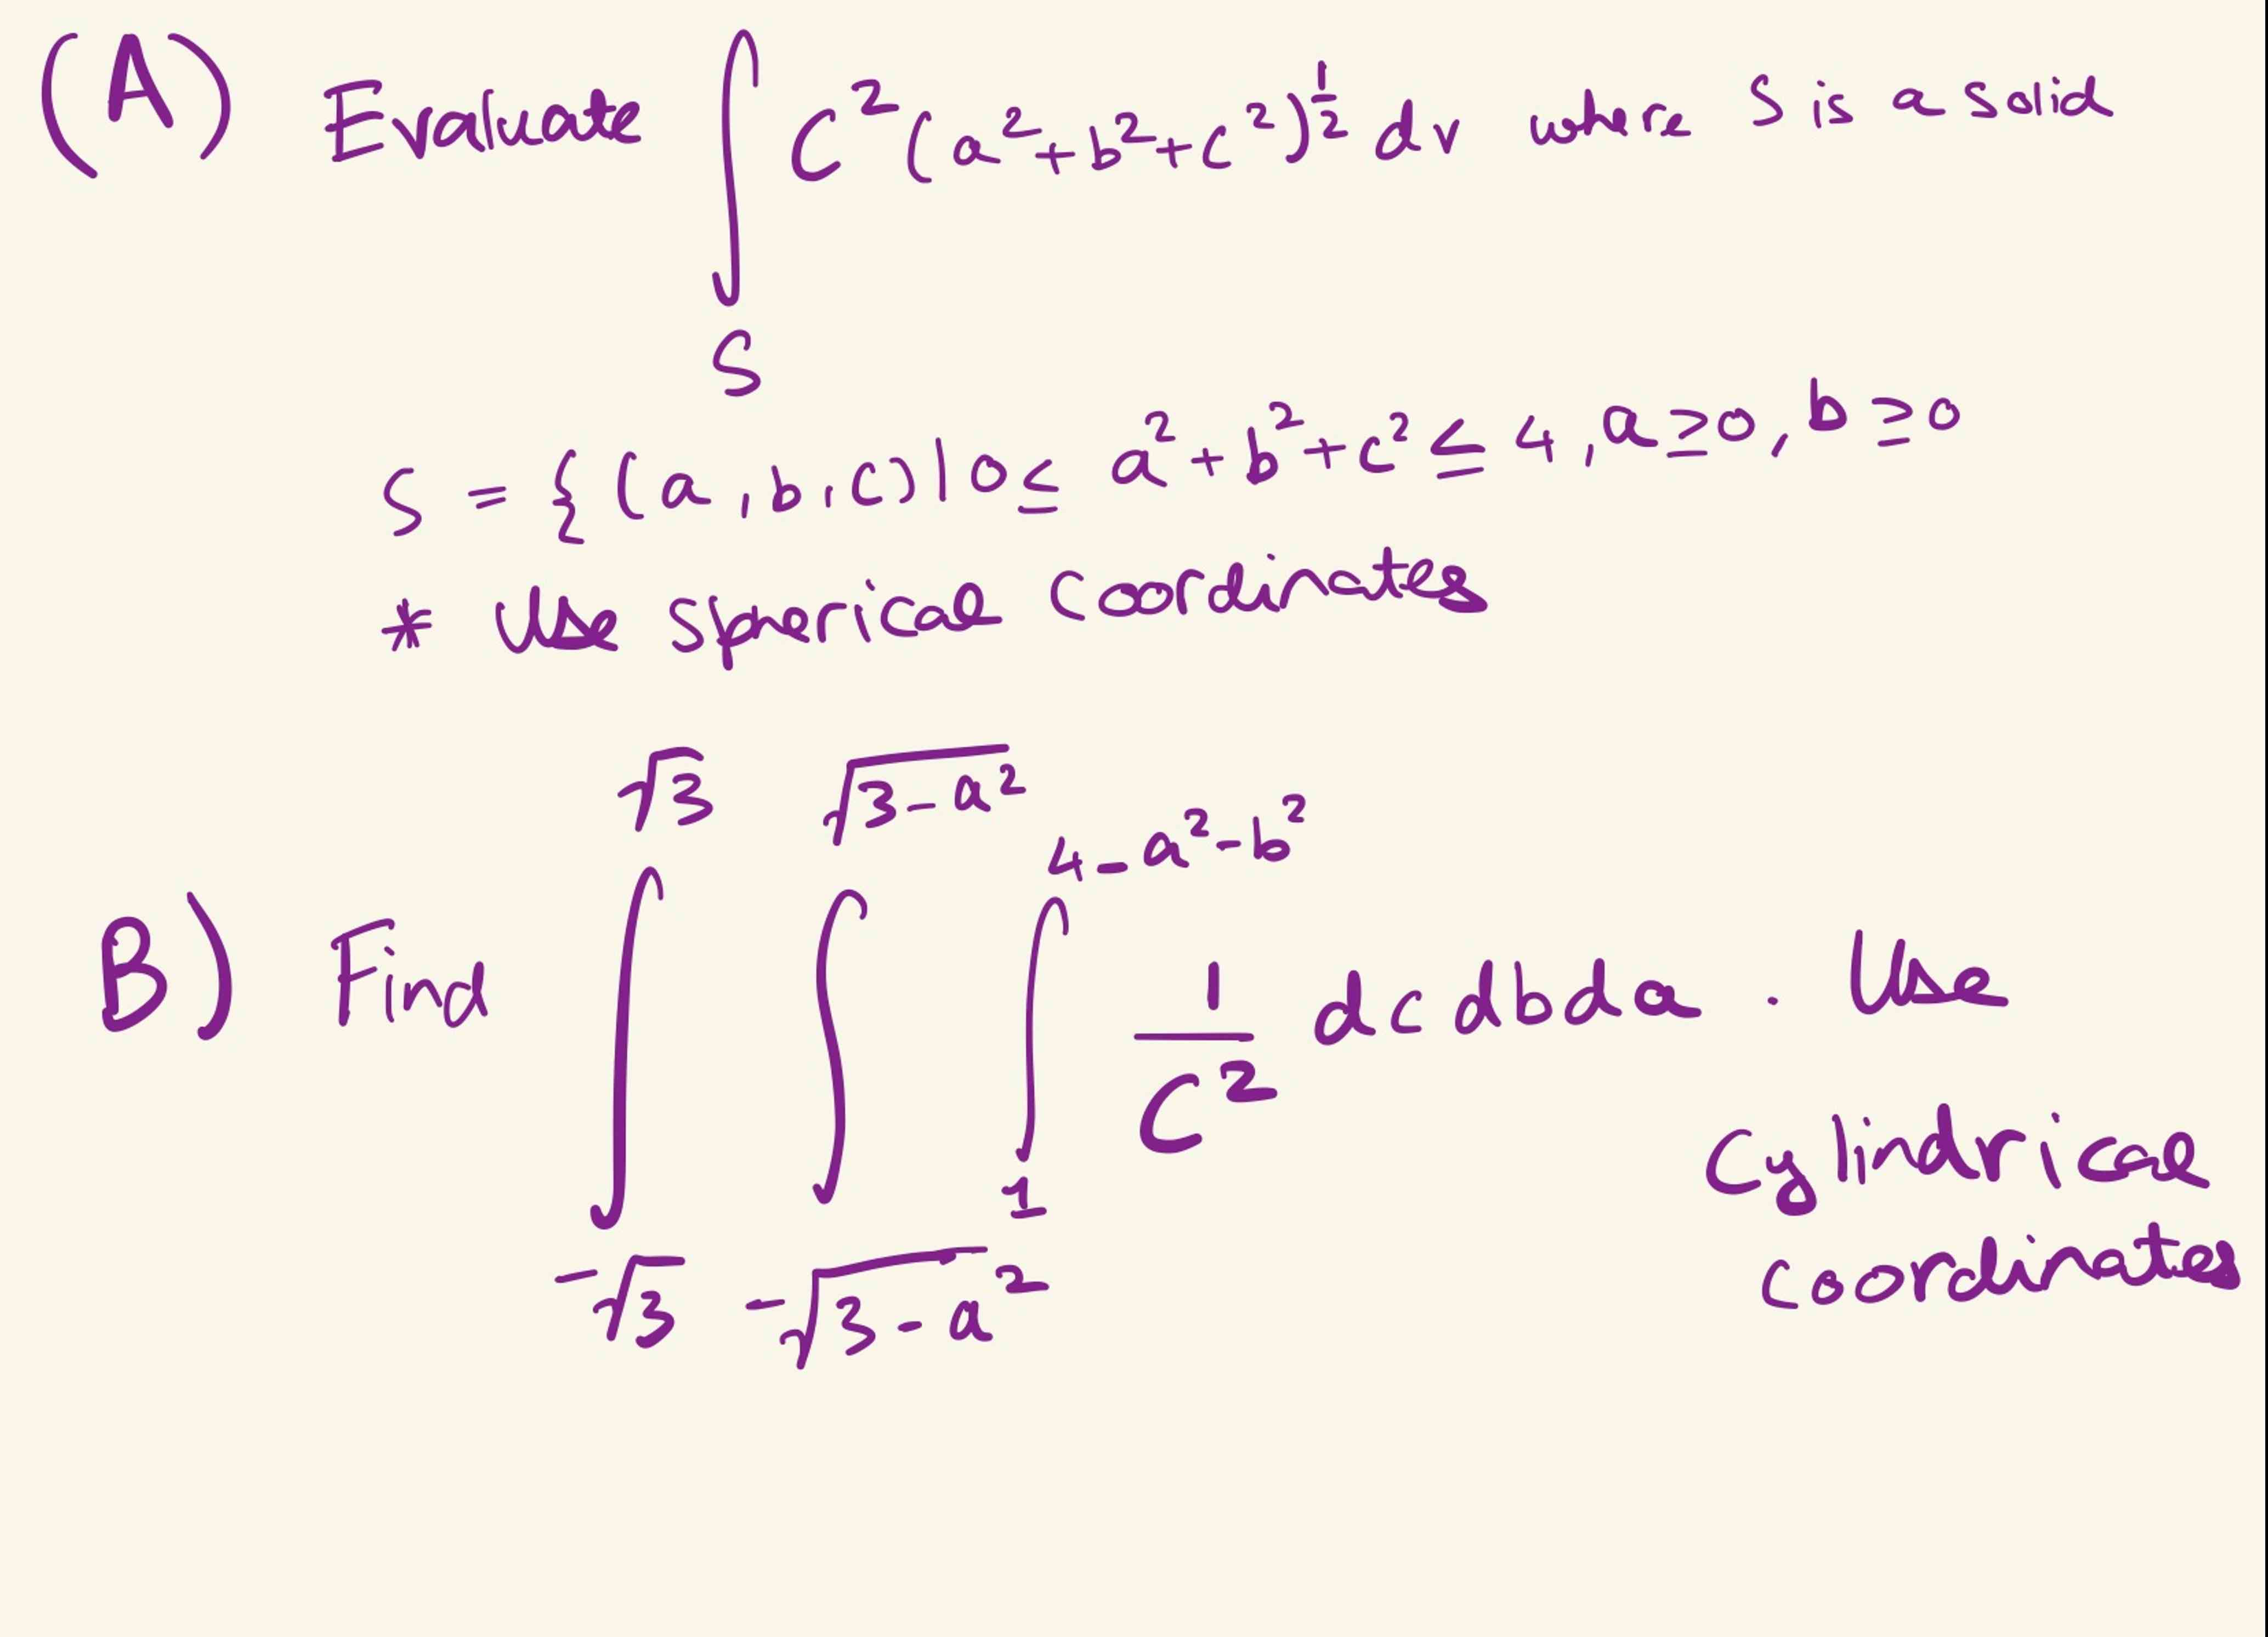 (A) Evaluate ∫_S C²(a²+b²+c²)^½ dv where S is a solid
S = {(a,b,c) | 0 ≤ a²+b²+c² ≤ 4, a ≥ 0, b ≥ 0
* Use sperical coordinates
B) Find ∫_{-√3}^{√3} ∫_{-√(3-a²)}^{√(3-a²)} ∫_1^{4-a²-b²} 1/C² dc db da . Use
Cylindrical
coordinates